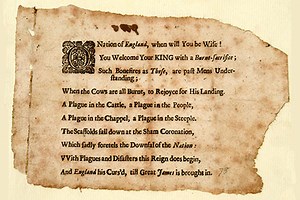 O Nation of England, when will You be Wise!
You Welcome Your KING with a Burnt-sacrifice;
Such Bonefires as These, are past Mens Under-
standing;
When the Cows are all Burnt, to Rejoyce for His Landing.
A Plague in the Cattle, a Plague in the People,
A Plague in the Chappel, a Plague in the Steeple.
The Scaffolds fall down at the Sham Coronation,
Which sadly foretels the Downfal of the Nation:
VVith Plagues and Disasters this Reign does begin,
And England his Curs'd, till Great James is brought in.